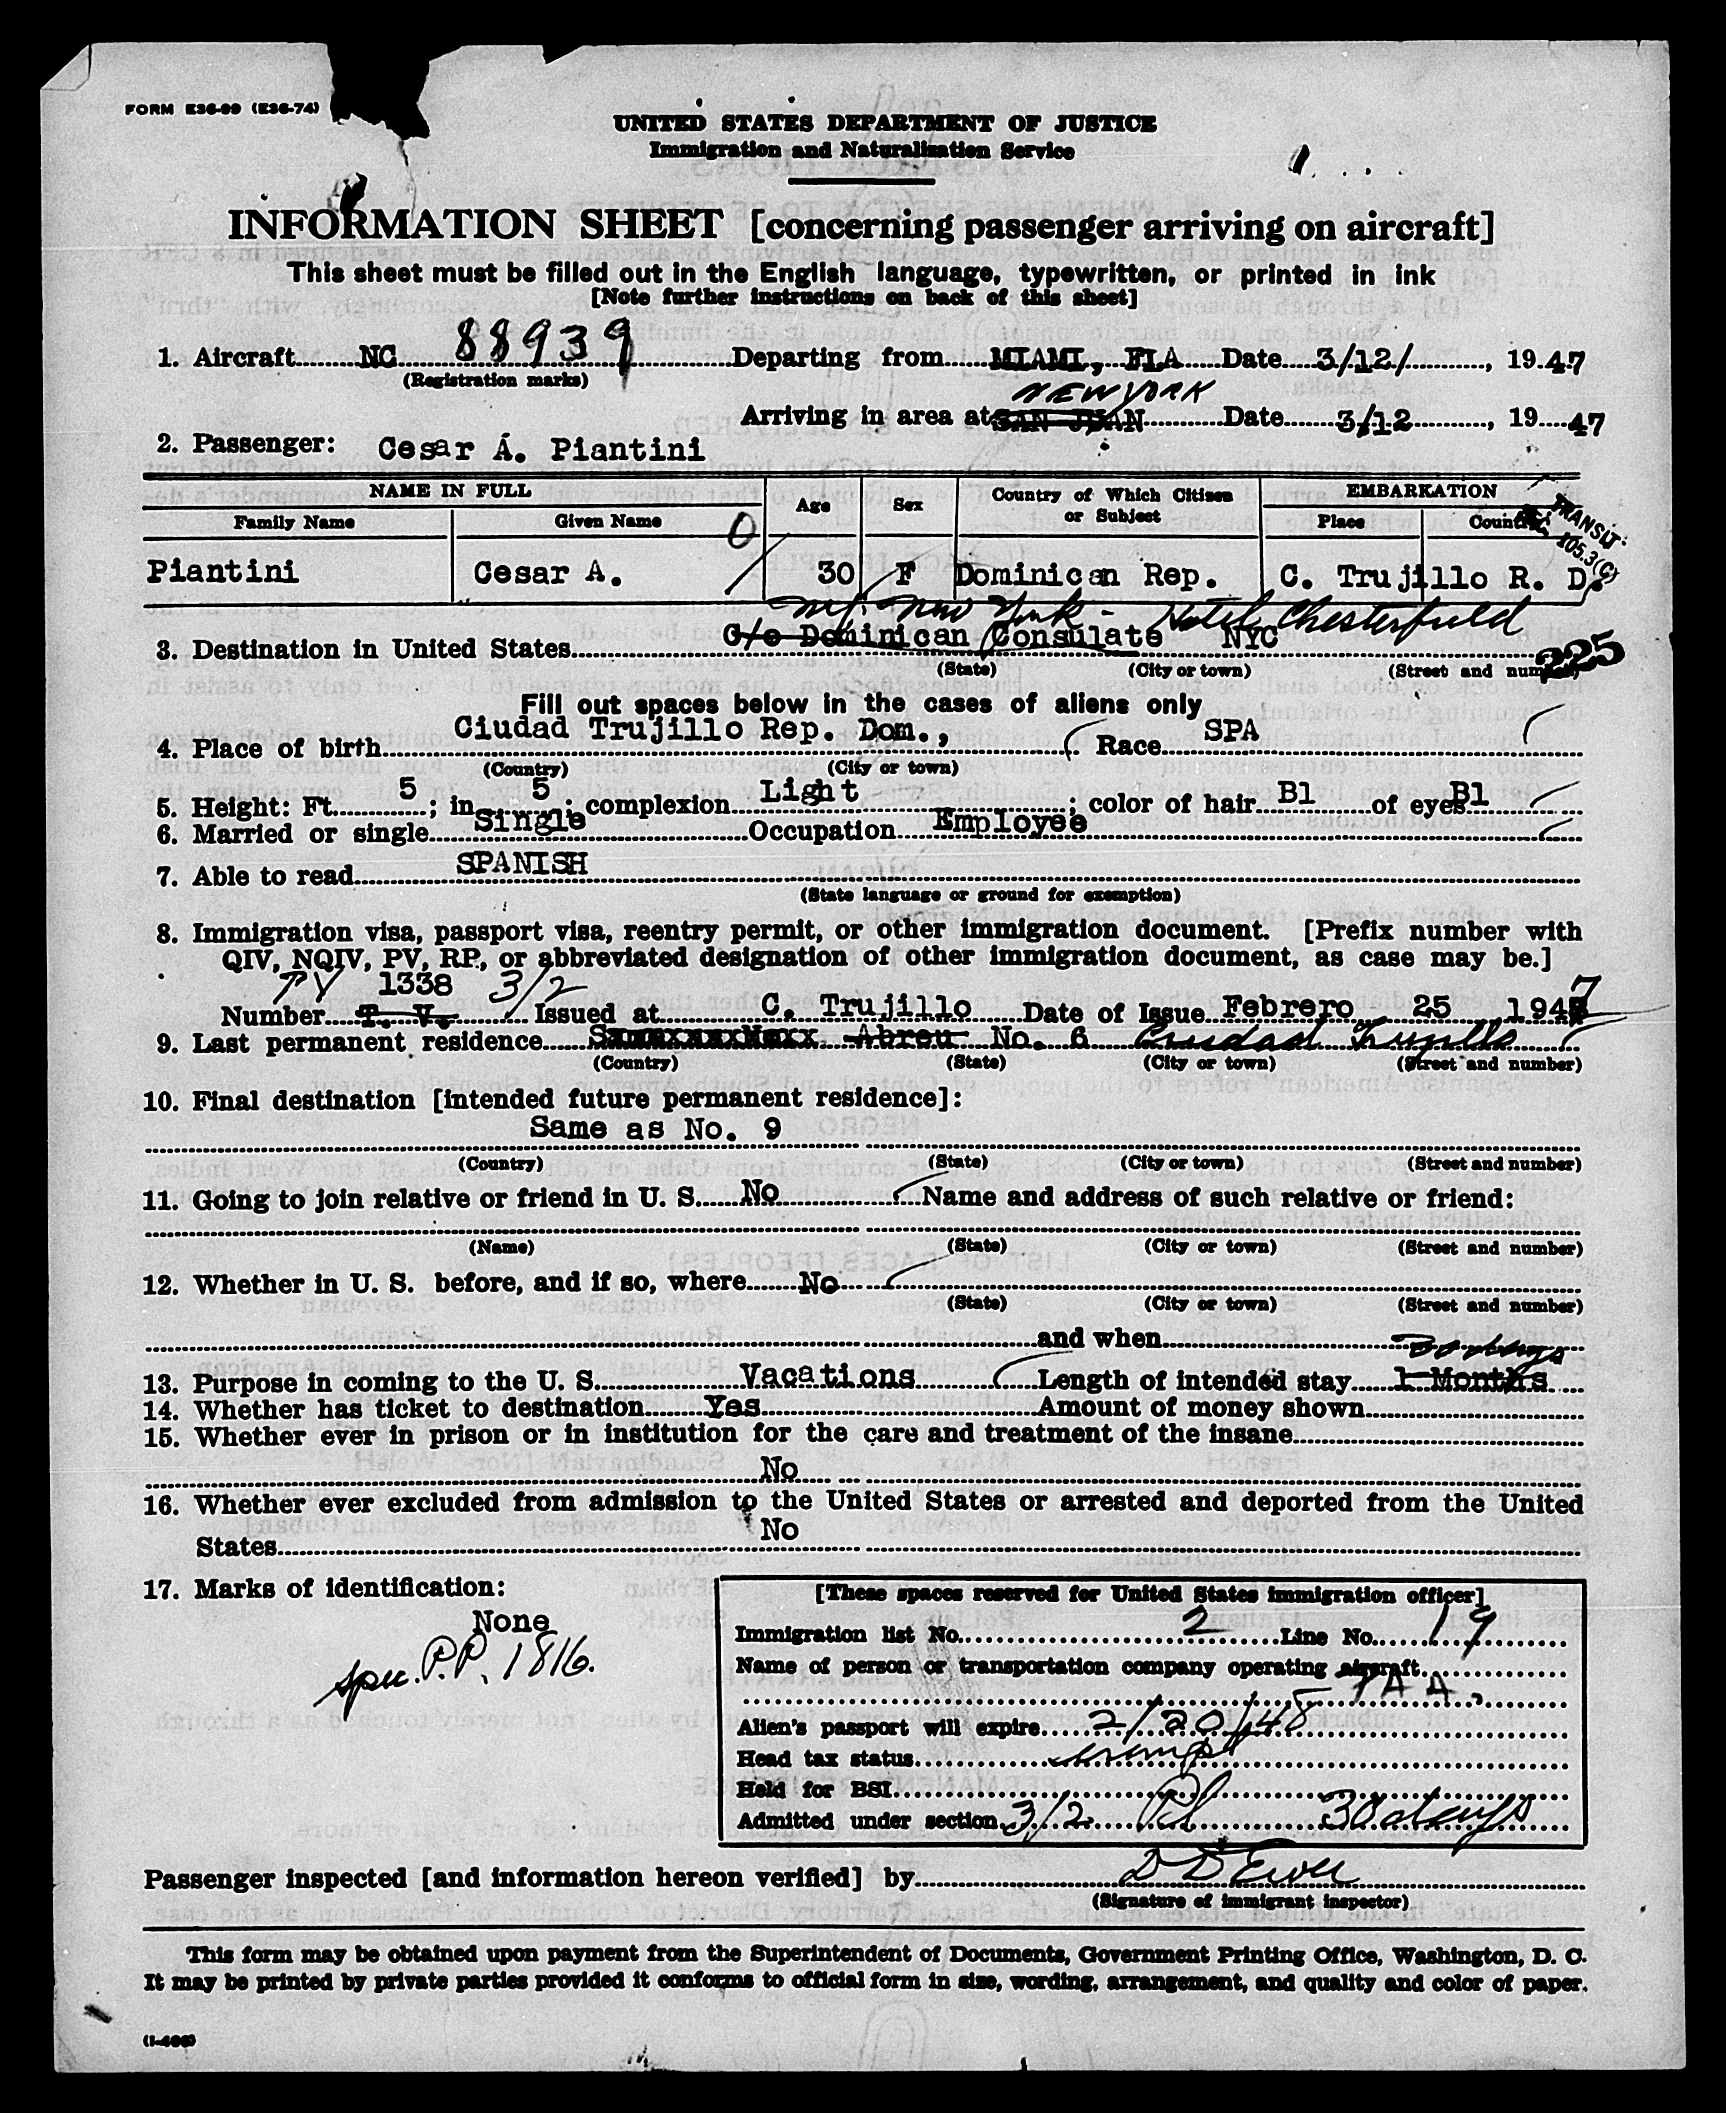 FORM E36-99 (E36-74)
UNITED STATES DEPARTMENT OF JUSTICE
Immigration and Naturalization Service
INFORMATION SHEET [concerning passenger arriving on aircraft]
This sheet must be filled out in the English language, typewritten, or printed in ink
[Note further instructions on back of this sheet]
1. Aircraft NC 88939 Departing from MIAMI, FLA Date 3/12/, 1947
(Registration marks)
NEW YORK
Arriving in area at SAN JUAN Date 3/12, 19 47
2. Passenger: Cesar A. Piantini
NAME IN FULL Age Sex Country of Which Citizen or Subject EMBARKATION
Family Name Given Name Place Country
TRANSIT
SEC. 105.3(C)
0
Piantini Cesar A. 30 F Dominican Rep. C. Trujillo R. D.
New York - Hotel Chesterfield
3. Destination in United States C/o Dominican Consulate NYC
(State) (City or town) (Street and number)
225
Fill out spaces below in the cases of aliens only
4. Place of birth Ciudad Trujillo Rep. Dom., Race SPA
(Country) (City or town)
5. Height: Ft. 5; in 5; complexion Light; color of hair Bl of eyes Bl
6. Married or single Single Occupation Employee
7. Able to read SPANISH
(State language or ground for exemption)
8. Immigration visa, passport visa, reentry permit, or other immigration document. [Prefix number with
QIV, NQIV, PV, RP, or abbreviated designation of other immigration document, as case may be.]
PV 1338 3/2
Number T. V. Issued at C. Trujillo Date of Issue Febrero 25 1947
9. Last permanent residence Abreu No. 6 Ciudad Trujillo
(Country) (State) (City or town) (Street and number)
10. Final destination [intended future permanent residence]:
Same as No. 9
(Country) (State) (City or town) (Street and number)
11. Going to join relative or friend in U. S. No Name and address of such relative or friend:
(Name) (State) (City or town) (Street and number)
12. Whether in U. S. before, and if so, where No
(State) (City or town) (Street and number)
and when
13. Purpose in coming to the U. S. Vacations Length of intended stay 1 Months
14. Whether has ticket to destination Yes Amount of money shown
15. Whether ever in prison or in institution for the care and treatment of the insane
No
16. Whether ever excluded from admission to the United States or arrested and deported from the United
States No
17. Marks of identification:
None
P.P. 1816.
[These spaces reserved for United States immigration officer]
Immigration list No. 2 Line No. 19
Name of person or transportation company operating aircraft
PAA.
Alien's passport will expire 2/20/48
Head tax status exempt
Held for BSI
Admitted under section 3/2 30 days
Passenger inspected [and information hereon verified] by
(Signature of immigrant inspector)
This form may be obtained upon payment from the Superintendent of Documents, Government Printing Office, Washington, D. C.
It may be printed by private parties provided it conforms to official form in size, wording, arrangement, and quality and color of paper.
(I-466)